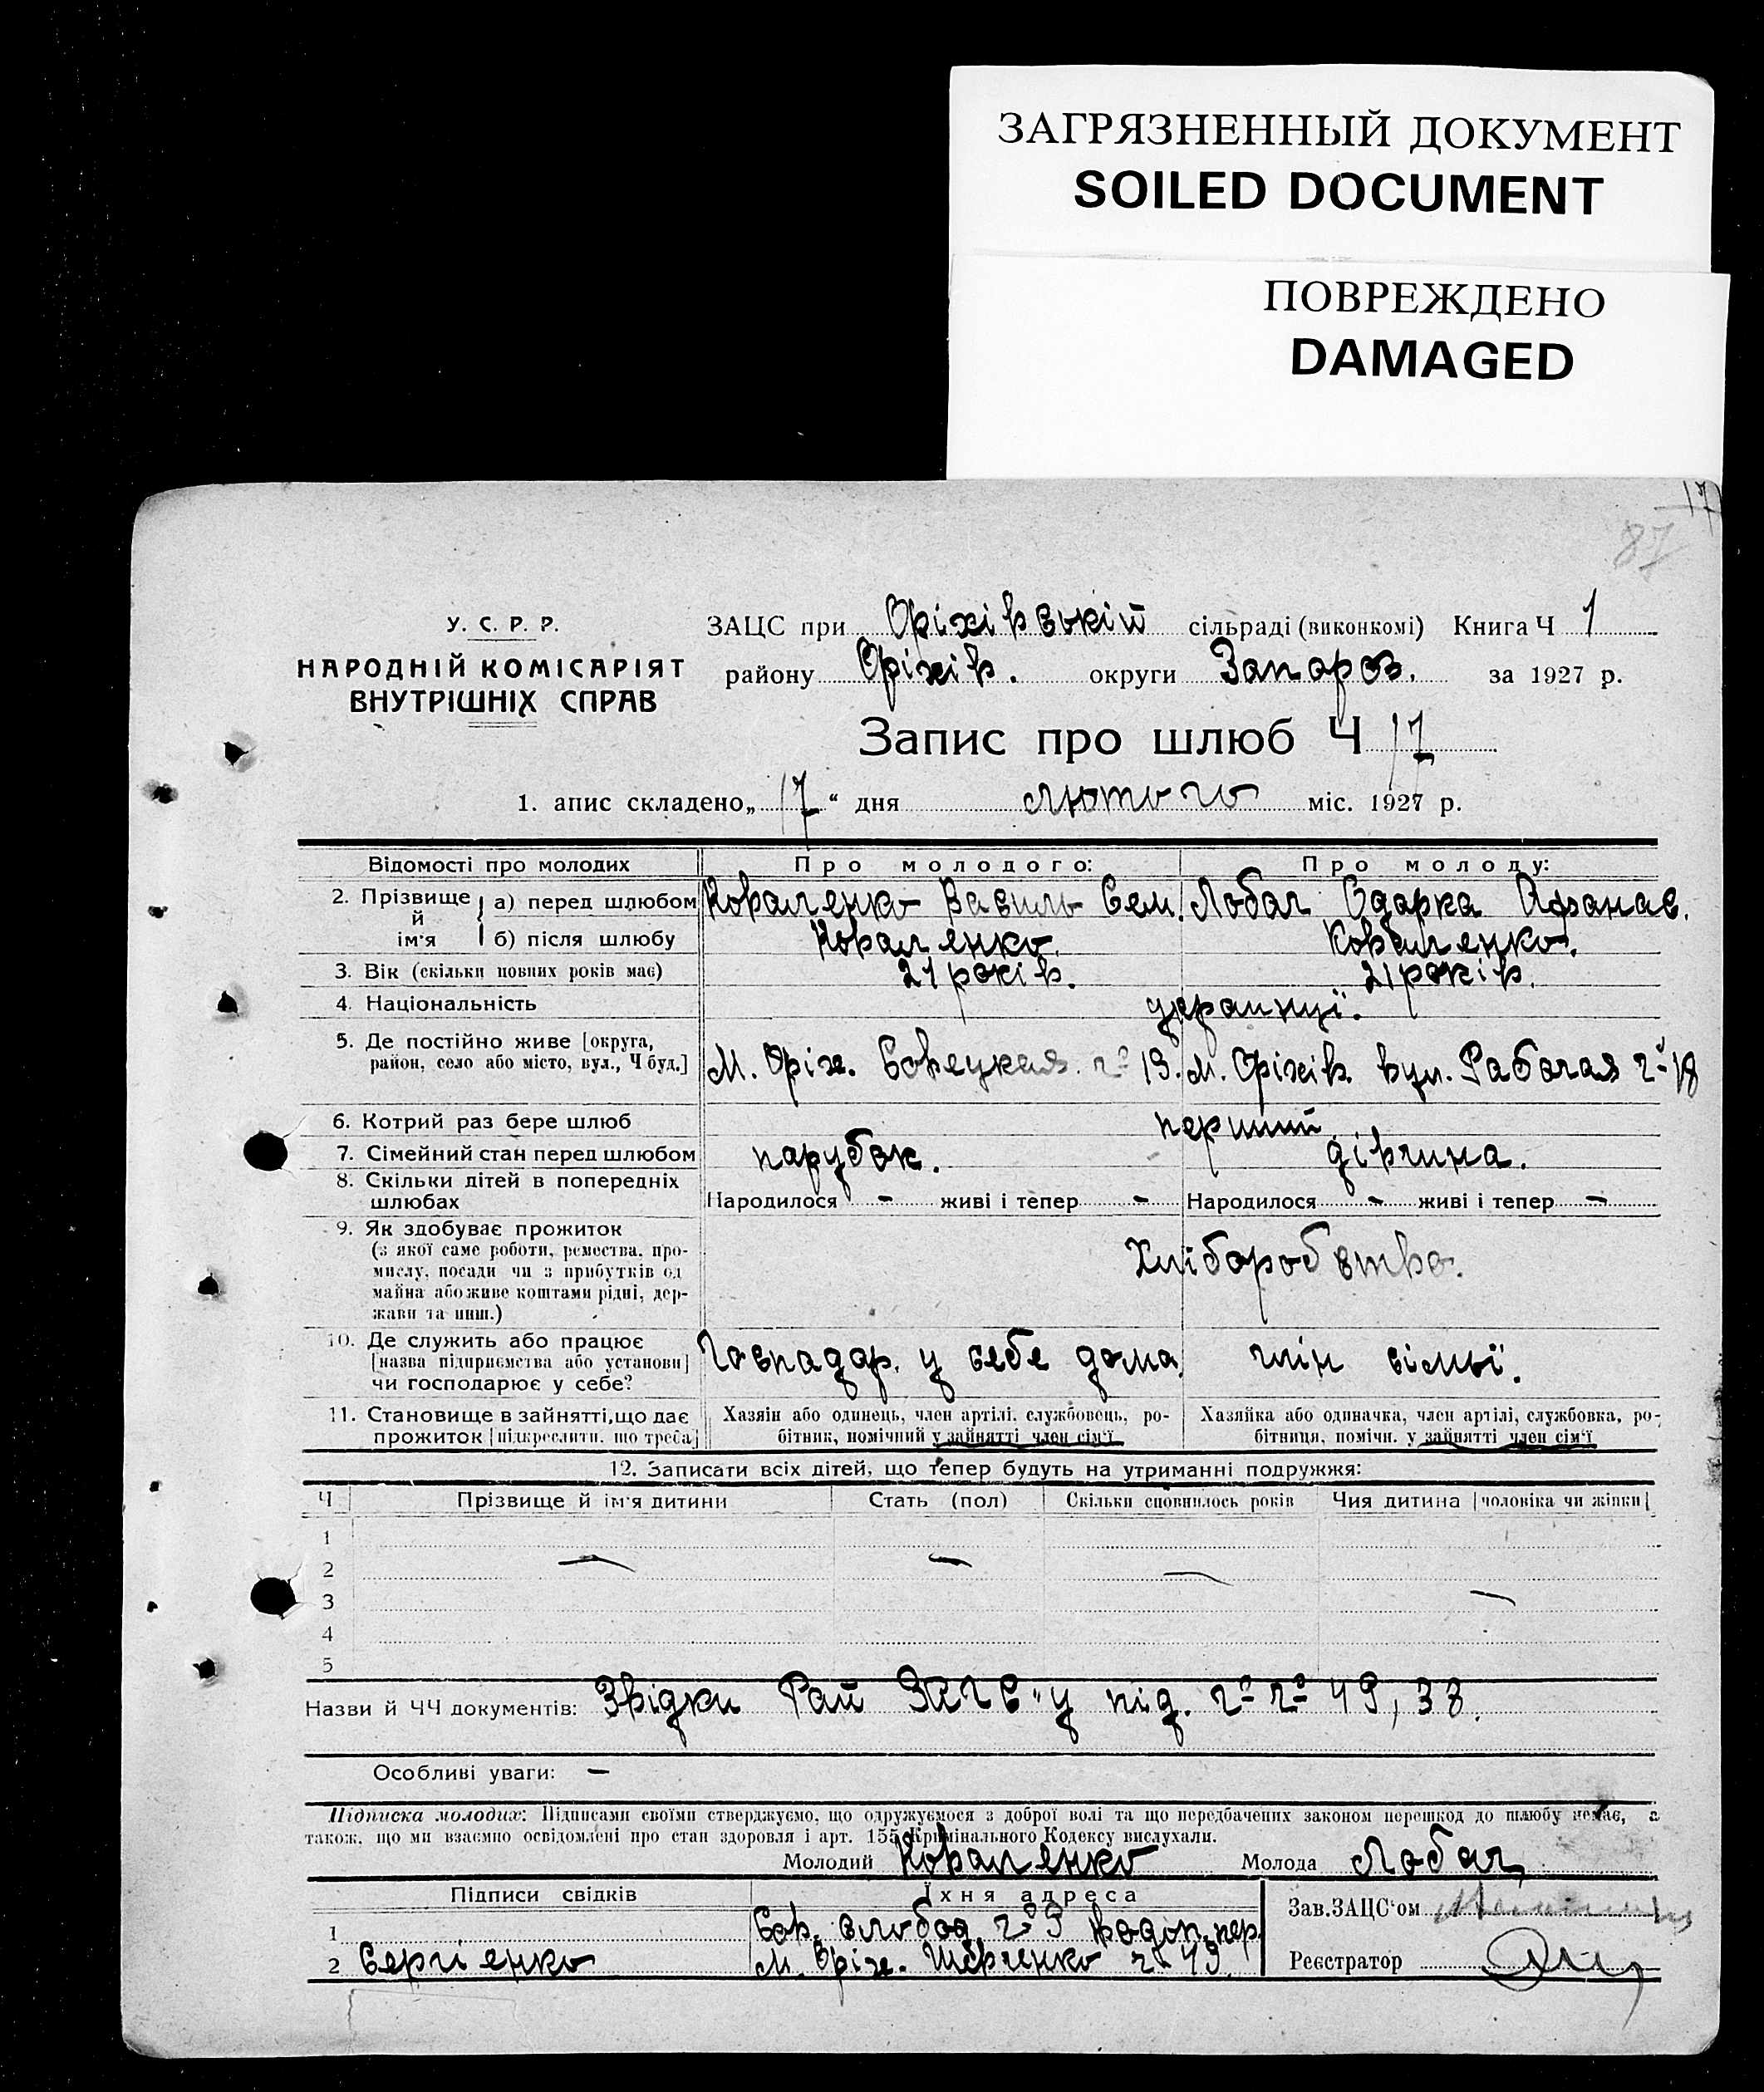 ЗАГРЯЗНЕННЫЙ ДОКУМЕНТ
SOILED DOCUMENT
ПОВРЕЖДЕНО
DAMAGED
17
87
У. С. Р. Р.
НАРОДНІЙ КОМІСАРІЯТ
ВНУТРІШНІХ СПРАВ
ЗАЦС при Оріхівській сільраді (виконкомі) Книга Ч 1
району Оріхів. округи Запороз. за 1927 р.
Запис про шлюб Ч 17
1. апис складено „17“ дня лютого міс. 1927 р.
Відомості про молодих Про молодого: Про молоду:
2. Прізвище й ім'я а) перед шлюбом Коваленко Василь Сем. Лобач Одарка Афанас.
б) після шлюбу Коваленко. Коваленко.
3. Вік (скільки повних років має) 21 років. 21 років.
4. Національність українці.
5. Де постійно живе [округа, район, село або місто, вул., Ч буд.] М. Оріх. Совецкая. ч° 19. М. Оріхів вул. Рабочая ч° 18
6. Котрий раз бере шлюб перший
7. Сімейний стан перед шлюбом парубок. дівчина.
8. Скільки дітей в попередніх шлюбах Народилося - живі і тепер - Народилося - живі і тепер -
9. Як здобуває прожиток
(з якої саме роботи, ремества, про-
мислу, посади чи з прибутків од
майна або живе коштами рідні, дер-
жави та инш.)
Хліборобство.
10. Де служить або працює
[назва підприємства або установи]
чи господарює у себе?
Госпадар. у себе дома. член сімьї.
11. Становище в зайнятті, що дає
прожиток [підкреслити, що треба]
Хазяїн або одинець, член артілі, службовець, ро-
бітник, помічний у зайнятті член сім'ї
Хазяйка або одиначка, член артілі, службовка, ро-
бітниця, помічн. у зайнятті член сім'ї
12. Записати всіх дітей, що тепер будуть на утриманні подружжя:
Ч Прізвище й ім'я дитини Стать (пол) Скільки сповнилось років Чия дитина [чоловіка чи жінки]
1
2
3
4
5
Назви й ЧЧ документів: Звідки Рай ЗАГС"у під. ч° ч° 49, 38.
Особливі уваги: —
Підписка молодих: Підписами своїми стверджуємо, що одружуємося з доброї волі та що передбачених законом перешкод до шлюбу немає, а
також, що ми взаємно освідомлені про стан здоровля і арт. 155 Кримінального Кодексу вислухали.
Молодий Коваленко Молода Лобач
Підписи свідків Їхня адреса Зав.ЗАЦС'ом
1 Сов. слобод ч° 9 водоп. пер.
2 Сергієнко М. Оріх. Шевченко ч° 49. Реєстратор